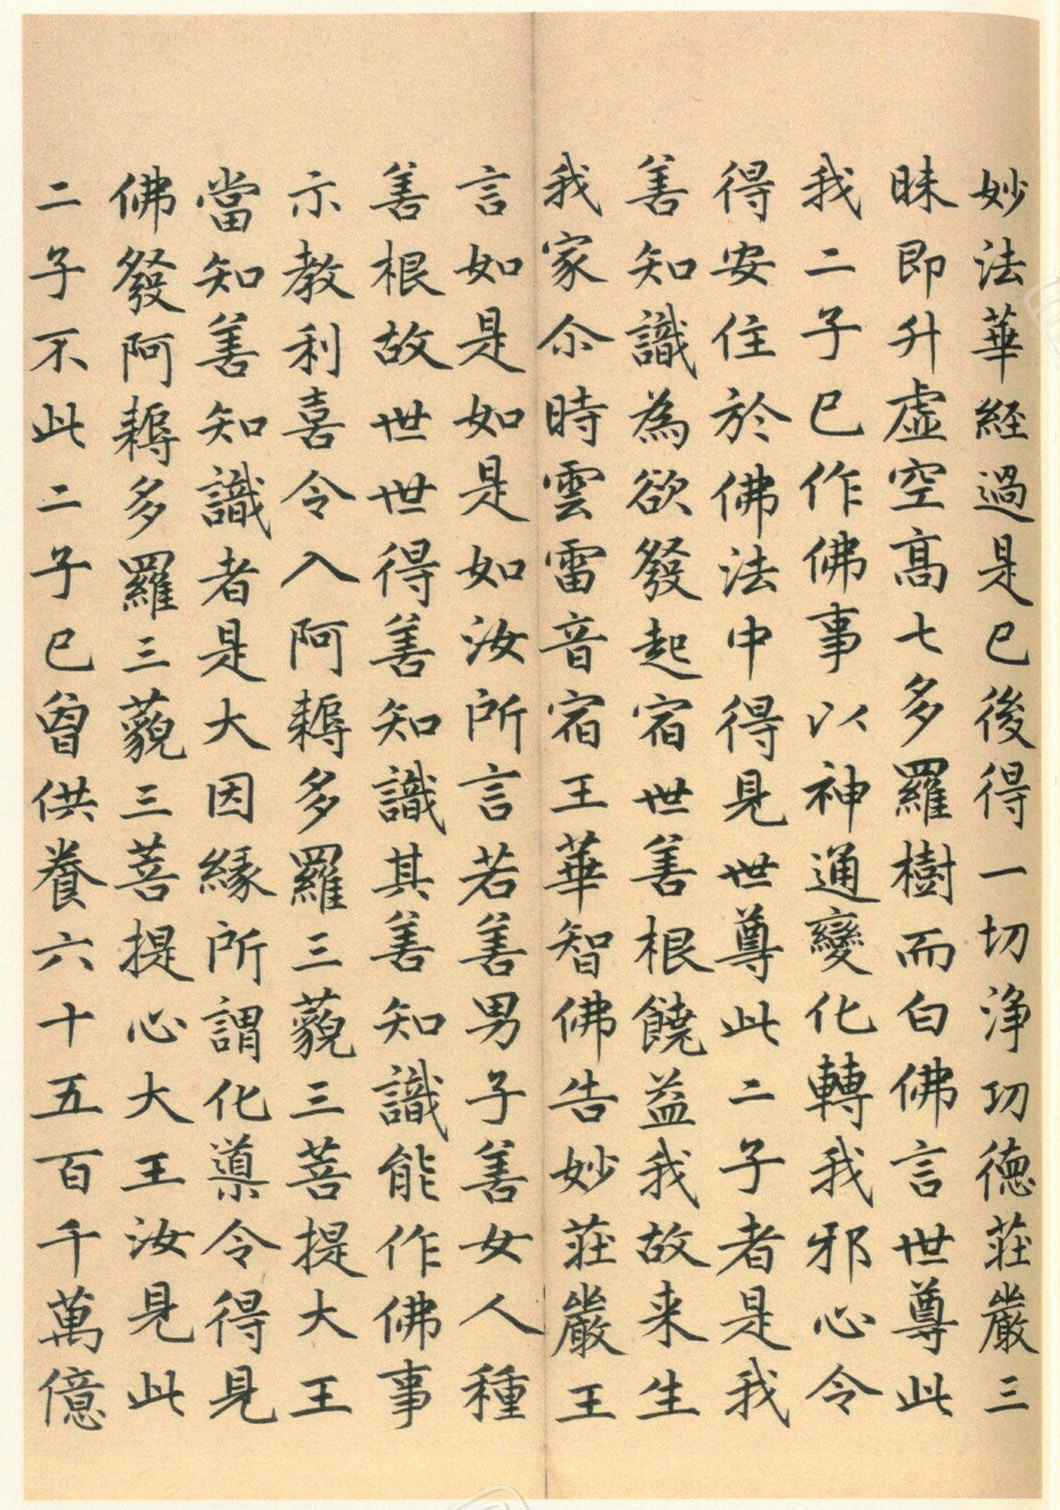 妙法華經過是已後得一切淨功德莊嚴三
昧即升虛空高七多羅樹而白佛言世尊此
我二子已作佛事以神通變化轉我邪心令
得安住於佛法中得見世尊此二子者是我
善知識為欲發起宿世善根饒益我故来生
我家尒時雲雷音宿王華智佛告妙莊嚴王
言如是如是如汝所言若善男子善女人種
善根故世世得善知識其善知識能作佛事
示教利喜令入阿耨多羅三藐三菩提大王
當知善知識者是大因緣所謂化導令得見
佛發阿耨多羅三藐三菩提心大王汝見此
二子不此二子已曾供養六十五百千萬億